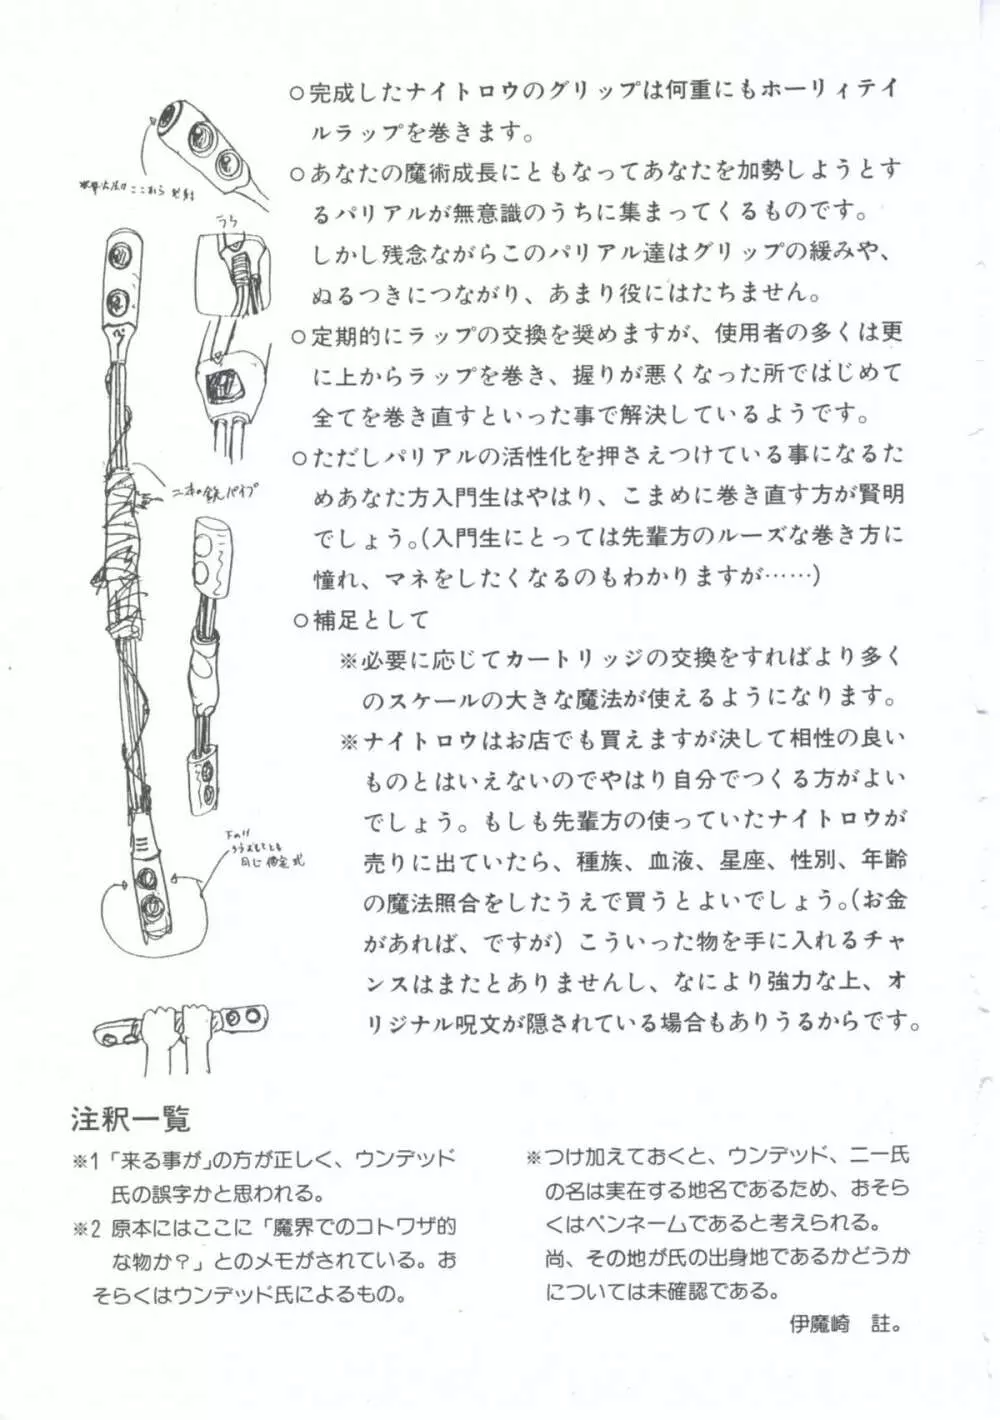 ○完成したナイトロウのグリップは何重にもホーリィテイ
ルラップを巻きます。
○あなたの魔術成長にともなってあなたを加勢しようとす
るパリアルが無意識のうちに集まってくるものです。
しかし残念ながらこのパリアル達はグリップの緩みや、
ぬるつきにつながり、あまり役にはたちません。
○定期的にラップの交換を奨めますが、使用者の多くは更
に上からラップを巻き、握りが悪くなった所ではじめて
全てを巻き直すといった事で解決しているようです。
○ただしパリアルの活性化を押さえつけている事になるた
めあなた方入門生はやはり、こまめに巻き直す方が賢明
でしょう。(入門生にとっては先輩方のルーズな巻き方に
憧れ、マネをしたくなるのもわかりますが……)
○補足として
※必要に応じてカートリッジの交換をすればより多く
のスケールの大きな魔法が使えるようになります。
※ナイトロウはお店でも買えますが決して相性の良い
ものとはいえないのでやはり自分でつくる方がよい
でしょう。もしも先輩方の使っていたナイトロウが
売りに出ていたら、種族、血液、星座、性別、年齢
の魔法照合をしたうえで買うとよいでしょう。(お金
があれば、ですが) こういった物を手に入れるチャ
ンスはまたとありませんし、なにより強力な上、オ
リジナル呪文が隠されている場合もありうるからです。
うら
二本の鉄パイプ
注釈一覧
※1「来る事が」の方が正しく、ウンデッド
氏の誤字かと思われる。
※2 原本にはここに「魔界でのコトワザ的
な物か?」とのメモがされている。お
そらくはウンデッド氏によるもの。
※つけ加えておくと、ウンデッド、ニー氏
の名は実在する地名であるため、おそら
くはペンネームであると考えられる。
尚、その地が氏の出身地であるかどうか
については未確認である。
伊魔崎　註。